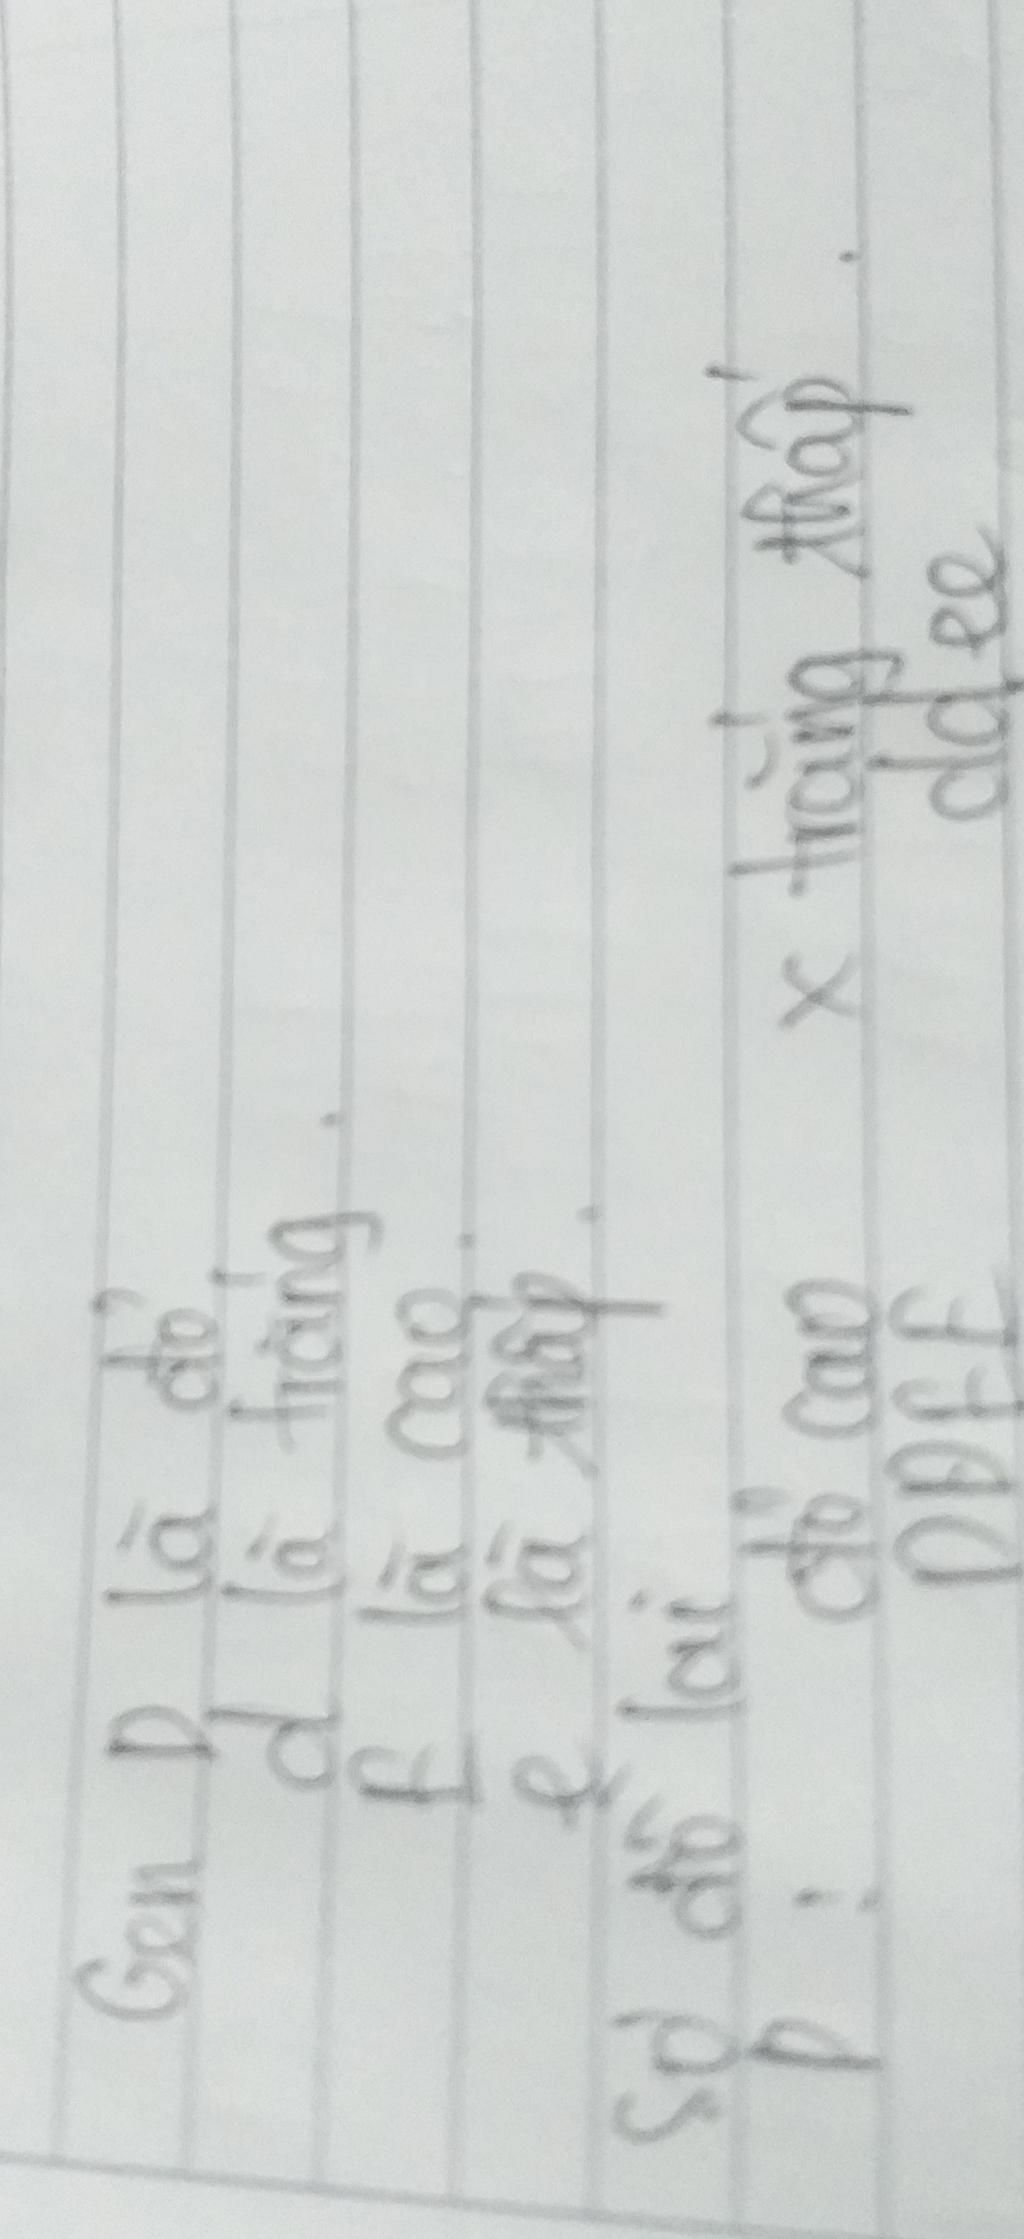 Gen D là đỏ
d là trắng.
E là cao.
e là thấp.
Sơ đồ lai
P : đỏ cao x trắng thấp.
DDEE ddee